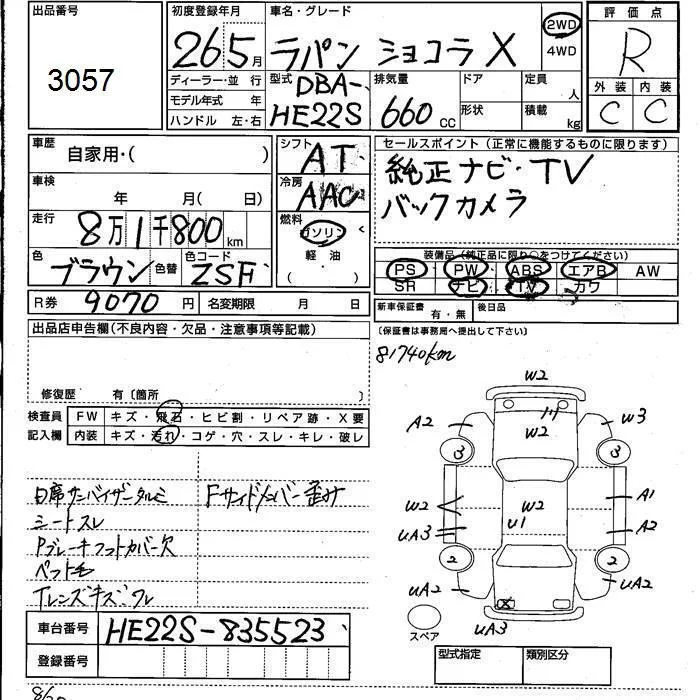 出品番号
3057
初度登録年月
26 5月
車名・グレード
ラパン ショコラ X
2WD
4WD
評価点
R
外装 内装
C C
ディーラー・並行
モデル年式 年
ハンドル 左・右
型式
DBA-
HE22S
排気量
660 CC
ドア
形状
定員
人
積載
kg
車歴
自家用・( )
車検
年 月( 日)
走行
8万1千800km
色
ブラウン
色替
色コード
ZSF
シフト
AT
冷房
AAC
燃料
ガソリン
軽油
( )
R券 9070円
名変期限 月 日
セールスポイント(正常に機能するものに限ります)
純正ナビ・TV
バックカメラ
装備品(純正品に限り○をつけてください)
PS PW ABS エアB AW
SR ナビ TV カワ
新車保証書
有・無
後日品
(保証書は事務局へ提出して下さい)
出品店申告欄(不良内容・欠品・注意事項等記載)
修復歴 有〔箇所 〕
検査員
記入欄
FW キズ・飛石・ヒビ割・リペア跡・X要
内装 キズ・汚れ・コゲ・穴・スレ・キレ・破レ
81740km
日席サンバイザータルミ
シートスレ
Pブレーキフットカバー欠
ペット毛
Tレンズキズワレ
Fサイドメンバー歪み
W2
A2
W2
W3
3
3
W2
W2
A1
UA3
U1
A2
2
2
UA2
X
UA2
UA3
スペア
車台番号 HE22S-835523
登録番号
型式指定 類別区分